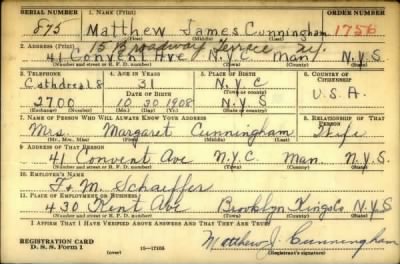 SERIAL NUMBER 1. NAME (Print) ORDER NUMBER
875 Matthew James Cunningham 1756
(First) (Middle) (Last)
2. ADDRESS (Print) 15 Broadway Terrace N.Y.
41 Convent Ave N.Y.C Man N.Y.S
(Number and street or R. F. D. number) (Town) (County) (State)
3. TELEPHONE 4. AGE IN YEARS 5. PLACE OF BIRTH 6. COUNTRY OF CITIZENSHIP
Cathedral 8 31 N.Y.C
DATE OF BIRTH (Town or county) U.S.A.
2700 10 20 1908 N.Y.S
(Exchange) (No.) (Mo.) (Day) (Yr.) (State or country)
7. NAME OF PERSON WHO WILL ALWAYS KNOW YOUR ADDRESS 8. RELATIONSHIP OF THAT PERSON
Mrs. Margaret Cunningham Wife
(Mr., Mrs., Miss) (First) (Middle) (Last)
9. ADDRESS OF THAT PERSON
41 Convent Ave N.Y.C. Man. N.Y.S.
(Number and street or R. F. D. number) (Town) (County) (State)
10. EMPLOYER'S NAME
F & M. Schaeffer
11. PLACE OF EMPLOYMENT OR BUSINESS
430 Kent Ave Brooklyn Kings Co. N.Y.S
(Number and street or R. F. D. number) (Town) (County) (State)
I AFFIRM THAT I HAVE VERIFIED ABOVE ANSWERS AND THAT THEY ARE TRUE.
REGISTRATION CARD
D. S. S. Form 1 (over) 16—17105
Matthew J. Cunningham
(Registrant's signature)